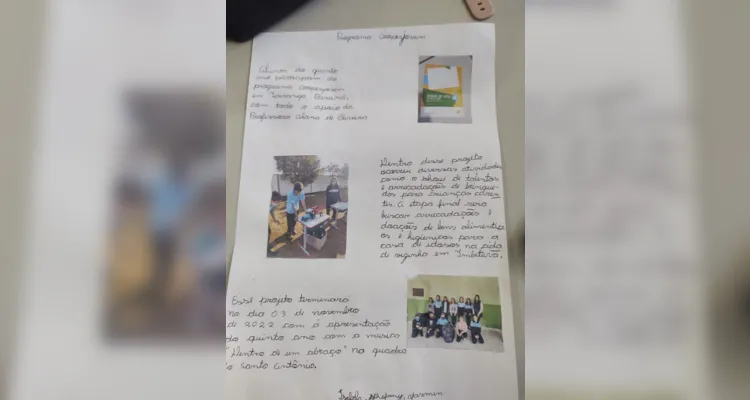 Programa cooperjovem
Alunos do quinto
ano participam do
programa cooperjovem
em Ivaiporã Paraná,
com todo o apoio da
Professora de Oliveira
Dentro desse projeto
ocorreu diversas atividades
como o show de talentos
e arrecadações de brinque
dos para crianças caren
tes. A etapa final sera
buscar arrecadações e
doações de bens alimentíci
os e higienicos para a
casa de idosos na
de em
Esse projeto terminara
no dia 03 de novembro
de 2022 com á apresentação
do quinto ano com a musica
"Dentro de um abraço" na quadra
Santo Antônio.